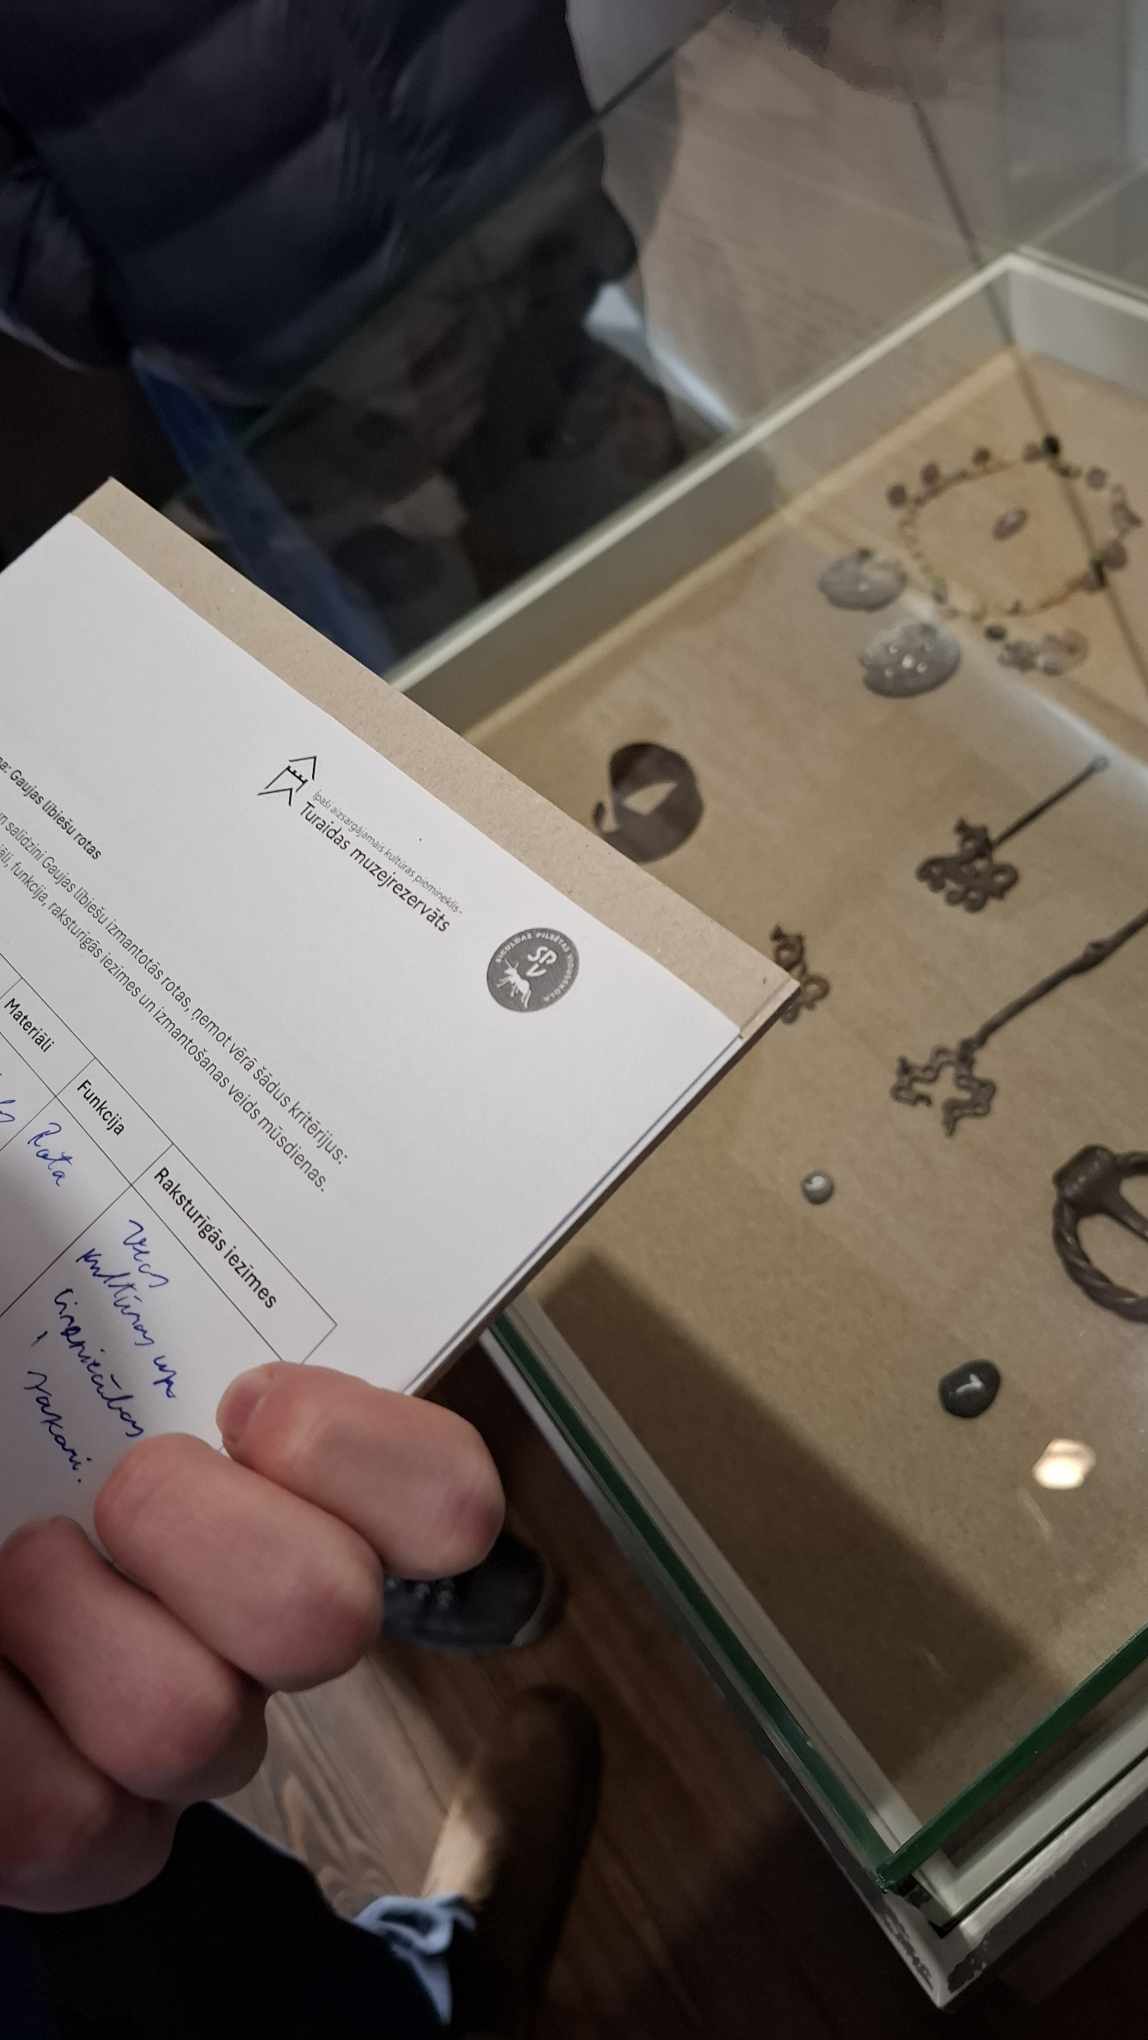 Īpaši aizsargājamais kultūras piemineklis -
Turaidas muzejrezervāts
SIGULDAS PILSĒTAS VIDUSSKOLA
SP
V
Gaujas lībiešu rotas
salīdzini Gaujas lībiešu izmantotās rotas, ņemot vērā šādus kritērijus:
funkcija, raksturīgās iezīmes un izmantošanas veids mūsdienās.
Materiāli
Funkcija
Raksturīgās iezīmes
Rota
kultūras un
rakari.
1